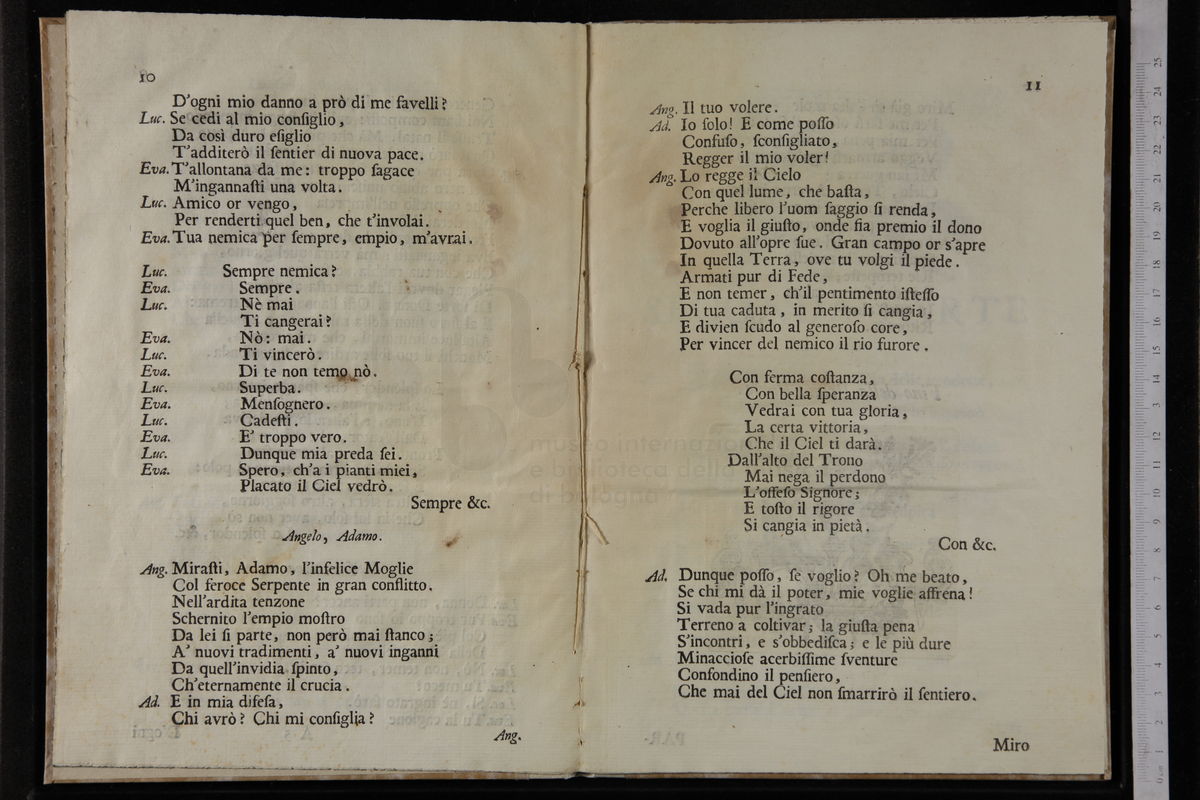 10
D'ogni mio danno a prò di me favelli?
Luc. Se cedi al mio conſiglio,
Da così duro eſiglio
T'additerò il ſentier di nuova pace.
Eva. T'allontana da me: troppo ſagace
M'ingannaſti una volta.
Luc. Amico or vengo,
Per renderti quel ben, che t'involai.
Eva. Tua nemica per ſempre, empio, m'avrai.
Luc. Sempre nemica?
Eva. Sempre.
Luc. Nè mai
Ti cangerai?
Eva. Nò: mai.
Luc. Ti vincerò.
Eva. Di te non temo nò.
Luc. Superba.
Eva. Menſognero.
Luc. Cadeſti.
Eva. E' troppo vero.
Luc. Dunque mia preda ſei.
Eva. Spero, ch'a i pianti miei,
Placato il Ciel vedrò.
Sempre &c.
Angelo, Adamo.
Ang. Miraſti, Adamo, l'infelice Moglie
Col feroce Serpente in gran conflitto.
Nell'ardita tenzone
Schernito l'empio moſtro
Da lei ſi parte, non però mai ſtanco;
A' nuovi tradimenti, a' nuovi inganni
Da quell'invidia ſpinto,
Ch'eternamente il crucia.
Ad. E in mia difeſa,
Chi avrò? Chi mi conſiglia?
Ang.
11
Ang. Il tuo volere.
Ad. Io ſolo! E come poſſo
Confuſo, ſconſigliato,
Regger il mio voler!
Ang. Lo regge il Cielo
Con quel lume, che baſta,
Perche libero l'uom ſaggio ſi renda,
E voglia il giuſto, onde ſia premio il dono
Dovuto all'opre ſue. Gran campo or s'apre
In quella Terra, ove tu volgi il piede.
Armati pur di Fede,
E non temer, ch'il pentimento iſteſſo
Di tua caduta, in merito ſi cangia,
E divien ſcudo al generoſo core,
Per vincer del nemico il rio furore.
Con ferma coſtanza,
Con bella ſperanza
Vedrai con tua gloria,
La certa vittoria,
Che il Ciel ti darà.
Dall'alto del Trono
Mai nega il perdono
L'offeſo Signore;
E toſto il rigore
Si cangia in pietà.
Con &c.
Ad. Dunque poſſo, ſe voglio? Oh me beato,
Se chi mi dà il poter, mie voglie affrena!
Si vada pur l'ingrato
Terreno a coltivar; la giuſta pena
S'incontri, e s'obbediſca; e le più dure
Minaccioſe acerbiſſime ſventure
Confondino il penſiero,
Che mai del Ciel non ſmarrirò il ſentiero.
Miro